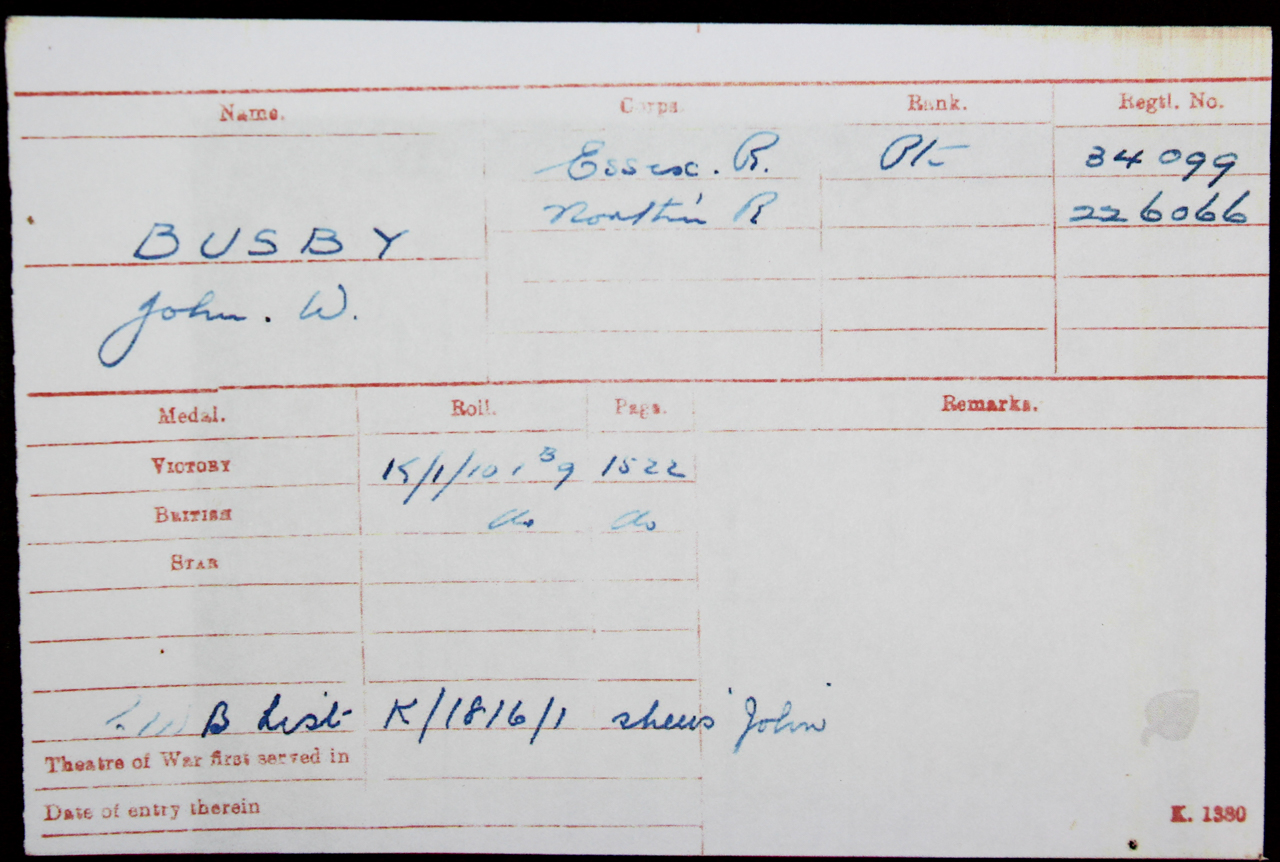 Name. Corps. Rank. Regtl. No.
Essex. R. Pte 34099
North'n R 226066
BUSBY
John. W.
Medal. Roll. Page. Remarks.
VICTORY K/1/101 B9 1522
BRITISH do do
STAR
B List K/1816/1 shews "John"
Theatre of War first served in
Date of entry therein
K. 1380